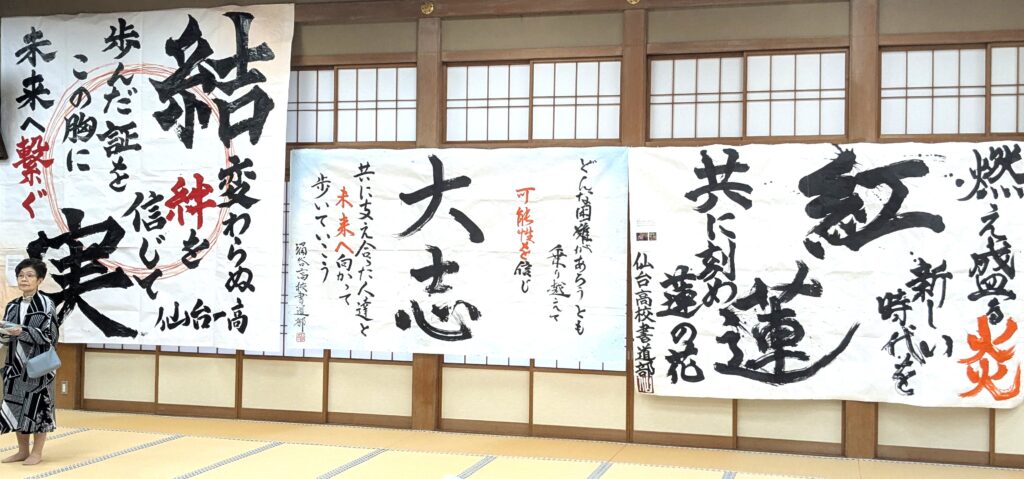 燃え盛る炎
新しい
時代を
紅蓮
共に刻め
蓮の花
仙台高校書道部
どんな困難があろうとも
乗り越えて
可能性を信じ
大志
共に支え合った人達と
未来へ向かって
歩いていこう
涌谷高校書道部
結実
変わらぬ
絆を
信じて
歩んだ証を
この胸に
未来へ繋ぐ
仙台一高